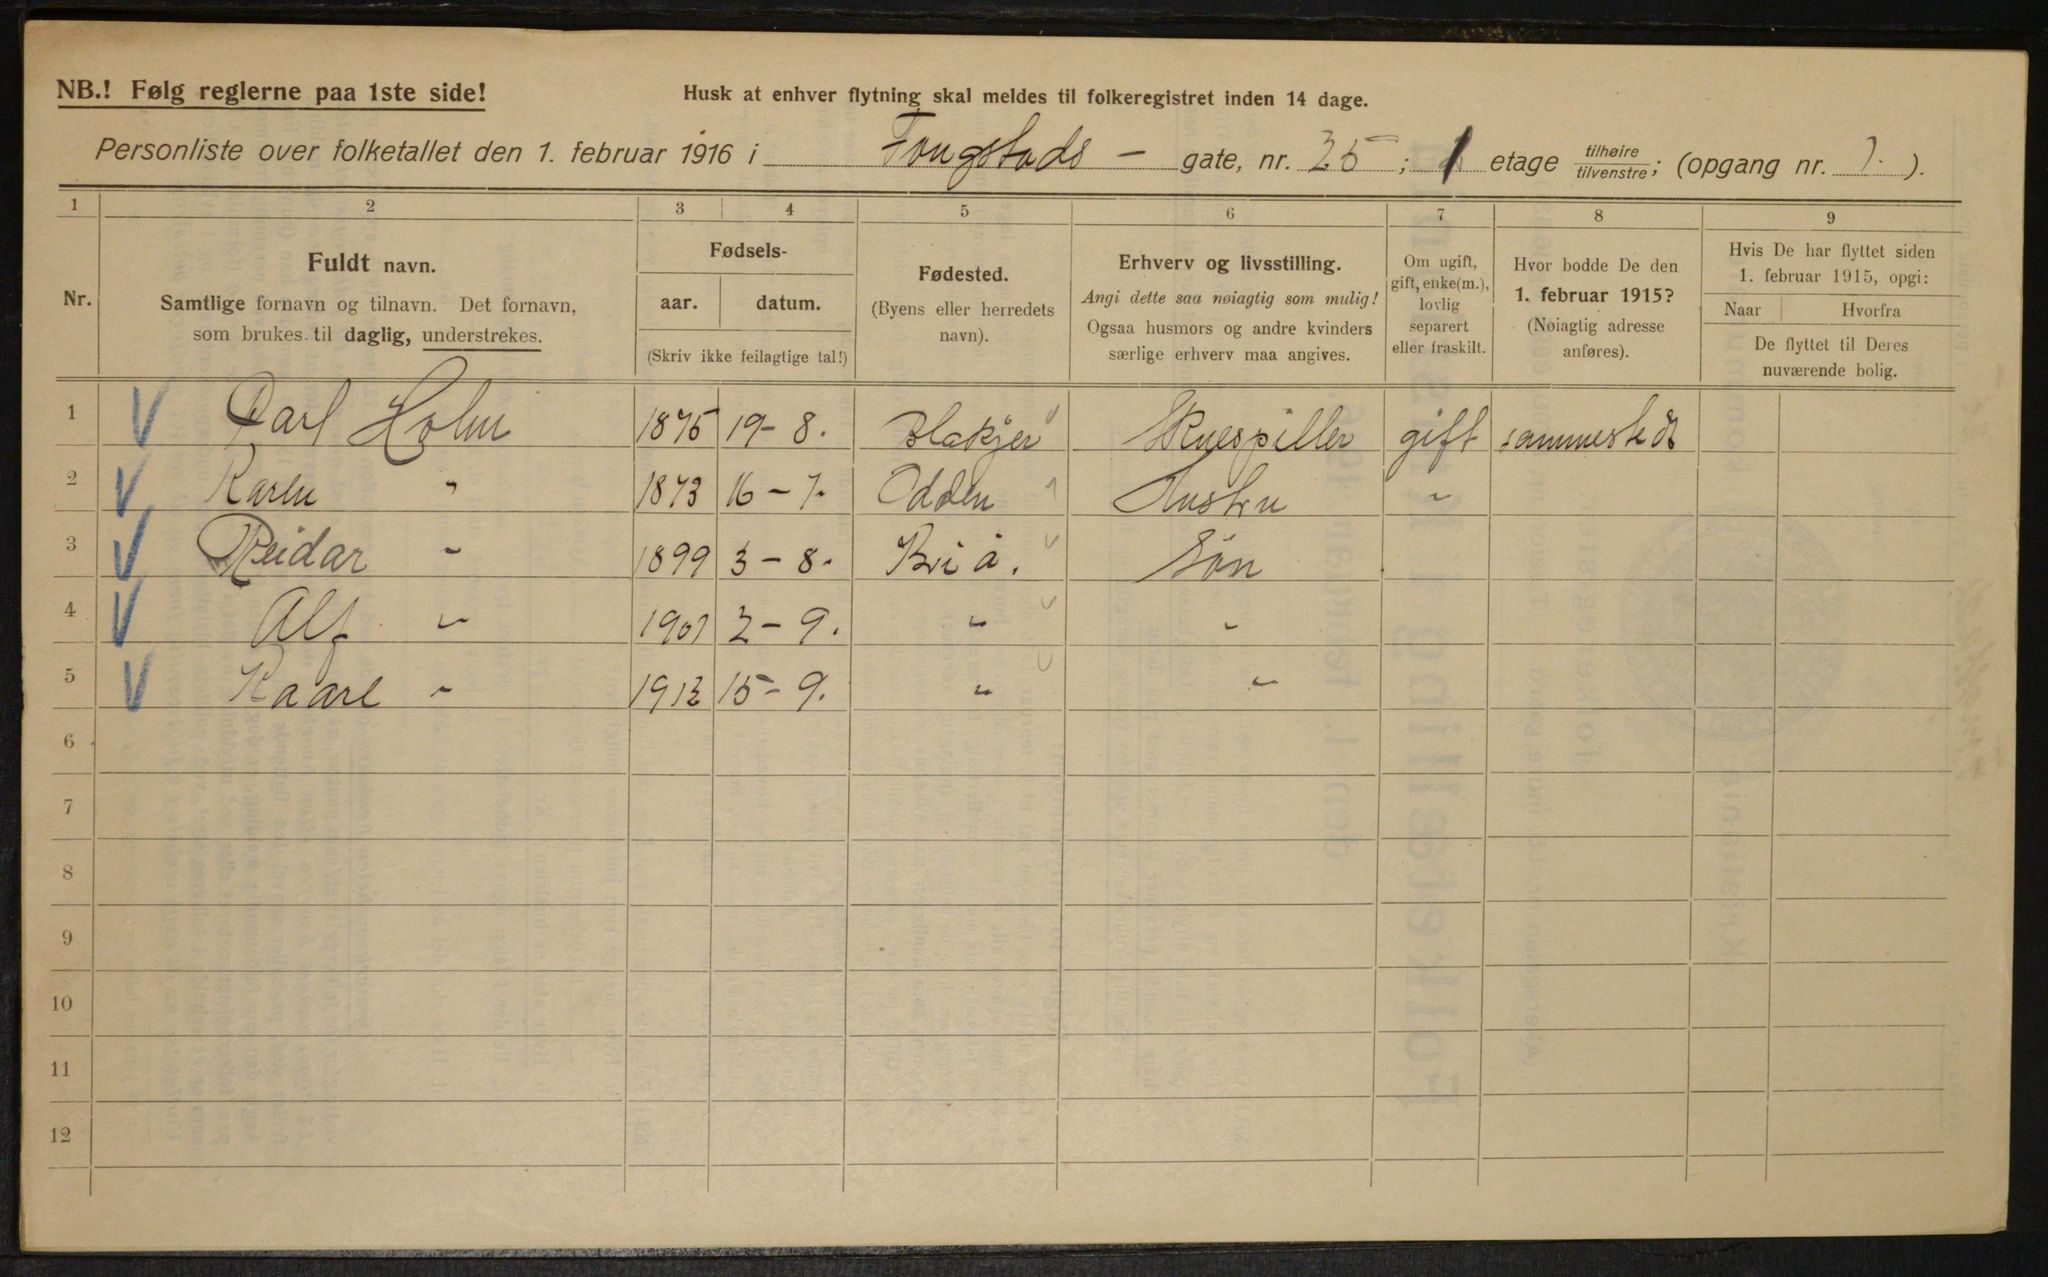 NB.! Følg reglerne paa 1ste side!
Husk at enhver flytning skal meldes til folkeregistret inden 14 dage.
Personliste over folketallet den 1. februar 1916 i Fougstads – gate, nr. 25; 1 etage tilhøire/tilvenstre; (opgang nr. 1.).
1 2 3 4 5 6 7 8 9
Nr.
Fuldt navn.
Samtlige fornavn og tilnavn. Det fornavn,
som brukes til daglig, understrekes.
Fødsels-
aar. datum.
(Skriv ikke feilagtige tal!)
Fødested.
(Byens eller herredets
navn).
Erhverv og livsstilling.
Angi dette saa nøiagtig som mulig!
Ogsaa husmors og andre kvinders
særlige erhverv maa angives.
Om ugift,
gift, enke(m.),
lovlig
separert
eller fraskilt.
Hvor bodde De den
1. februar 1915?
(Nøiagtig adresse
anføres).
Hvis De har flyttet siden
1. februar 1915, opgi:
Naar Hvorfra
De flyttet til Deres
nuværende bolig.
1 V Carl Holm 1875 19-8. Blakjer Skuespiller gift sammesteds
2 V Karen " 1873 16-7. Odden Hustru "
3 V Reidar " 1899 3-8. Kri a. Søn
4 V Alf " 1901 2-9. " "
5 V Kaare " 1913 15-9. " "
6
7
8
9
10
11
12